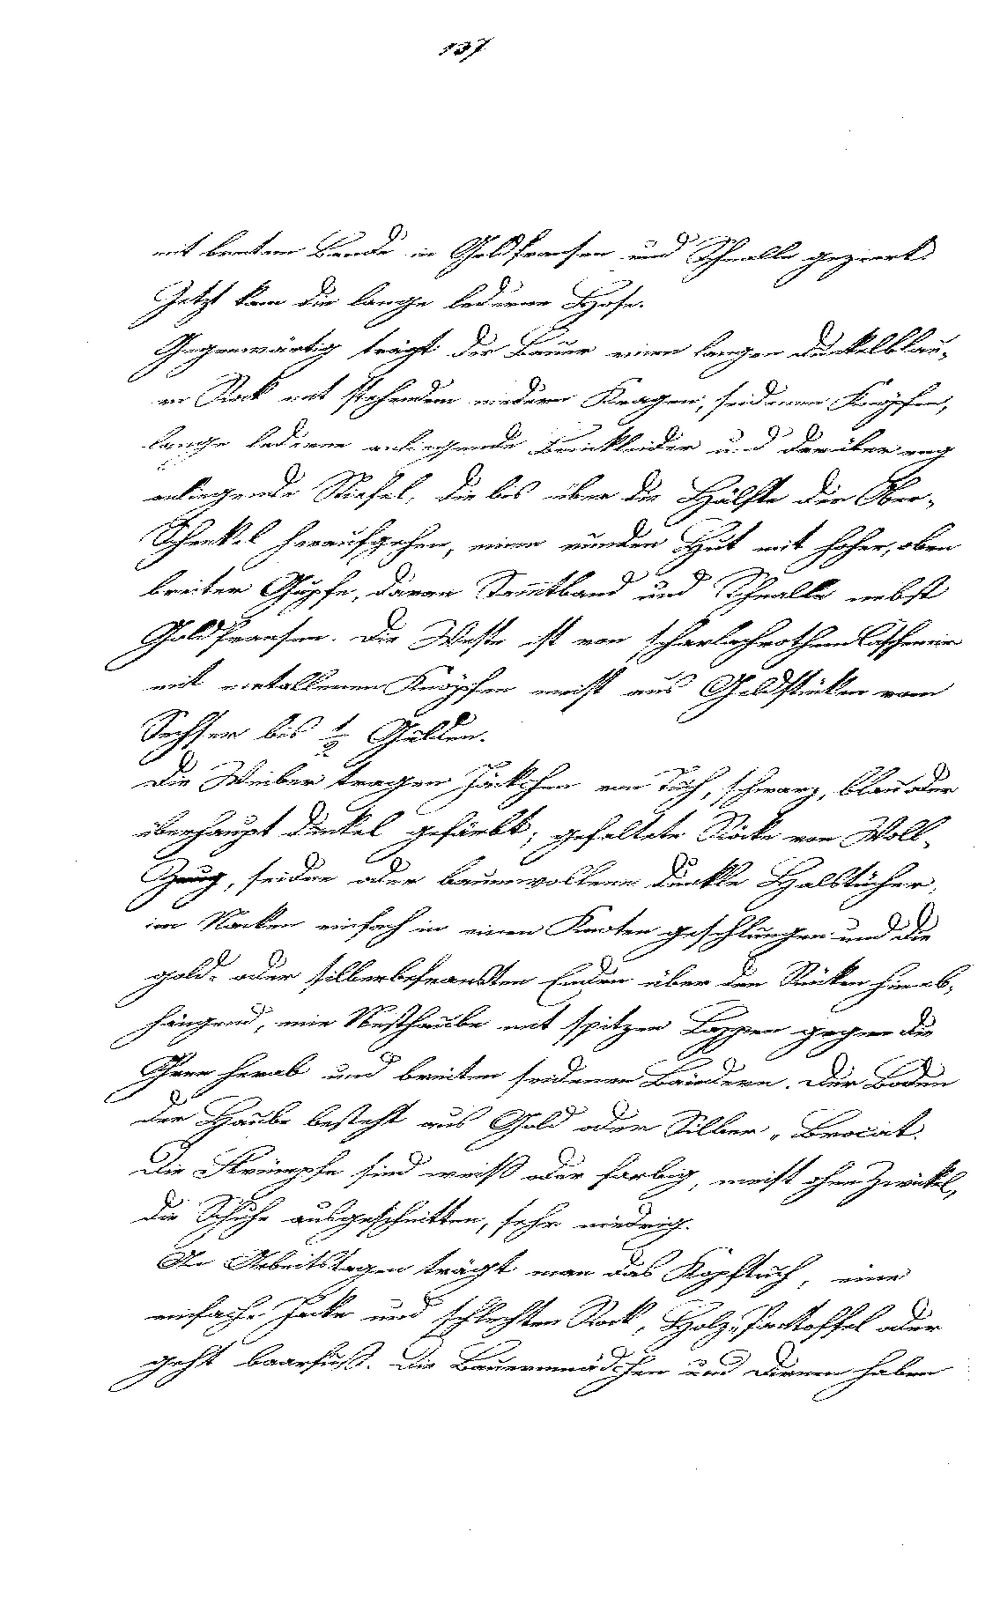 137
mit breitem Bande in Goldfransen und Schnalle geziert.
Jetzt kam die lange lederne Hose.
Gegenwärtig trägt der Bauer einen langen dunkelblau-
en Rock mit stehendem niedern Kragen, seidenen Knöpfen,
lange lederne anliegende Beinkleider und darüber eng
anliegende Stiefel, die bis über die Hälfte der Ober-
Schenkel heraufgehen, einen runden Hut mit hoher, oben
breiter Gupfe, daran Samtband und Schnalle nebst
Goldfransen. Die Weste ist von scharlachrothem
mit metallenen Knöpfen meist aus Geldstücken vom
Sechser bis 1/2 Gulden.
Die Weiber tragen Jäckchen von Tuch, schwarz, blau oder
überhaupt dunkel gefärbt; gefaltete Röcke von Woll-
Zeug, seidne oder baumwollene dunkle Halstücher,
im Nacken einfach in einen Knoten geschlungen und die
gold- oder silberbefransten Enden über den Rücken hinab-
hängend, eine Nesthaube mit spitzen Lappen gegen die
Ohren herab und breiten seidenen Bändern. Der Boden
der Haube besteht aus Gold oder Silber-Brocat.
Die Strümpfe sind weiß oder farbig, meist ohne Zwickel,
die Schuhe ausgeschnitten, sehr niedrig.
An Arbeitstagen trägt man das Kopftuch, eine
einfache Jacke und schlechten Rock, Holz-Pantoffel oder
geht baarfuß. Die Bauernmädchen und Dirnen haben